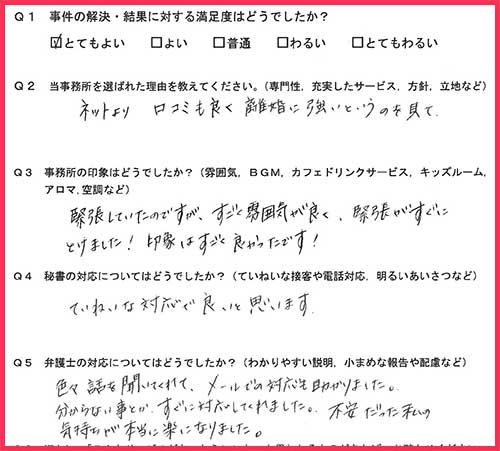 Ｑ１ 事件の解決・結果に対する満足度はどうでしたか？
☑とてもよい □よい □普通 □わるい □とてもわるい
Ｑ２ 当事務所を選ばれた理由を教えてください。（専門性，充実したサービス，方針，立地など）
ネットより 口コミも良く 離婚に強いというのを見て．
Ｑ３ 事務所の印象はどうでしたか？（雰囲気，ＢＧＭ，カフェドリンクサービス，キッズルーム，
アロマ，空調など）
緊張していたのですが、すごく雰囲気が良く、緊張がすぐに
とけました！ 印象はすごく良かったです！
Ｑ４ 秘書の対応についてはどうでしたか？（ていねいな接客や電話対応，明るいあいさつなど）
ていねいな対応で良いと思います．
Ｑ５ 弁護士の対応についてはどうでしたか？（わかりやすい説明，小まめな報告や配慮など）
色々話を聞いてくれて、メールでの対応も助かりました。
分からない事とか、すぐに対応してくれました。不安だった私の
気持ちが本当に楽になりました。